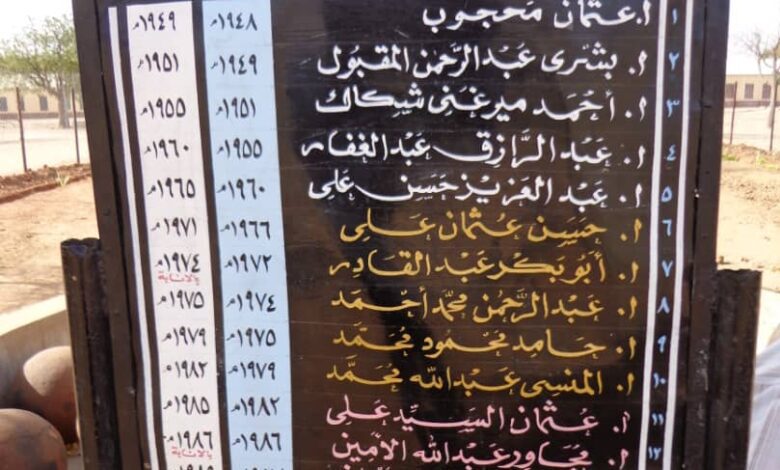 ١ أ. عثمان محجوب ١٩٤٨م ١٩٤٩م
٢ أ. بشرى عبدالرحمن المقبول ١٩٤٩م ١٩٥١م
٣ أ. أحمد ميرغنى شيكاك ١٩٥١م ١٩٥٥م
٤ أ. عبدالرازق عبدالغفار ١٩٥٥م ١٩٦٠م
٥ أ. عبدالعزيز حسن على ١٩٦٠م ١٩٦٥م
٦ أ. حسين عثمان على ١٩٦٦م ١٩٧١م
٧ أ. أبوبكر عبدالقادر ١٩٧٢م ١٩٧٤م بالانابة
٨ أ. عبدالرحمن محمد أحمد ١٩٧٤م ١٩٧٥م
٩ أ. حامد محمود محمد ١٩٧٥م ١٩٧٩م
١٠ أ. المنسى عبدالله محمد ١٩٧٩م ١٩٨٢م
١١ أ. عثمان السيد على ١٩٨٢م ١٩٨٥م
١٢ أ. مجاور عبدالله الأمين ١٩٨٦م ١٩٨٦م بالانابة